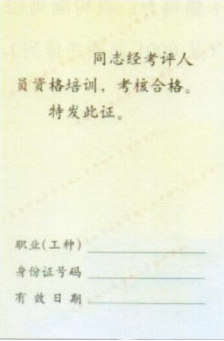 同志经考评人
员资格培训，考核合格。
特发此证。
职业(工种)
身份证号码
有效日期